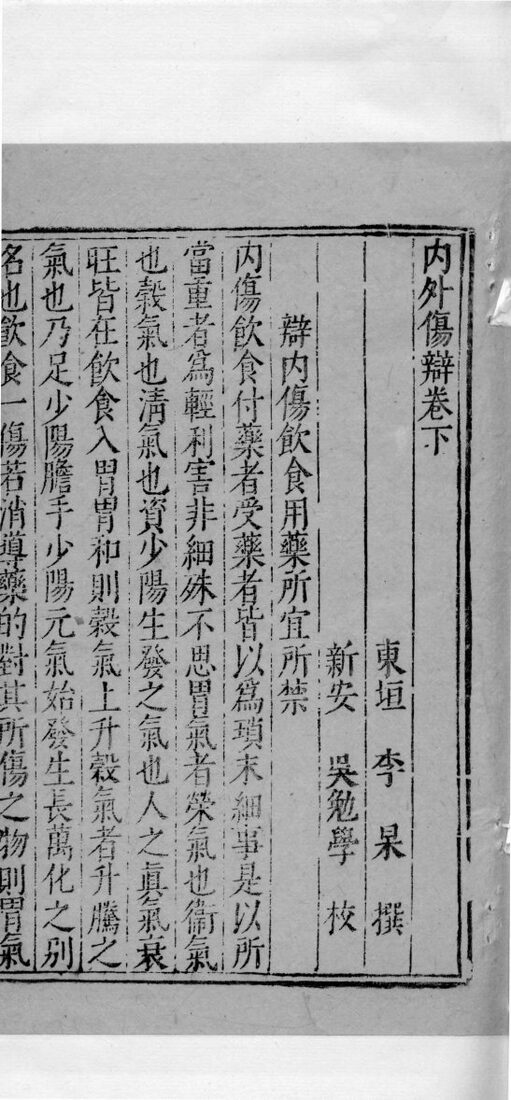 內外傷辯卷下
東垣 李杲 撰
新安 吳勉學 校
辯內傷飲食用藥所宜所禁
內傷飲食付藥者受藥者皆以爲瑣末細事是以所
當重者爲輕利害非細殊不思胃氣者榮氣也衞氣
也穀氣也清氣也資少陽生發之氣也人之眞氣衰
旺皆在飲食入胃胃和則穀氣上升穀氣者升騰之
氣也乃足少陽膽手少陽元氣始發生長萬化之别
名也飲食一傷若消導藥的對其所傷之物則胃氣